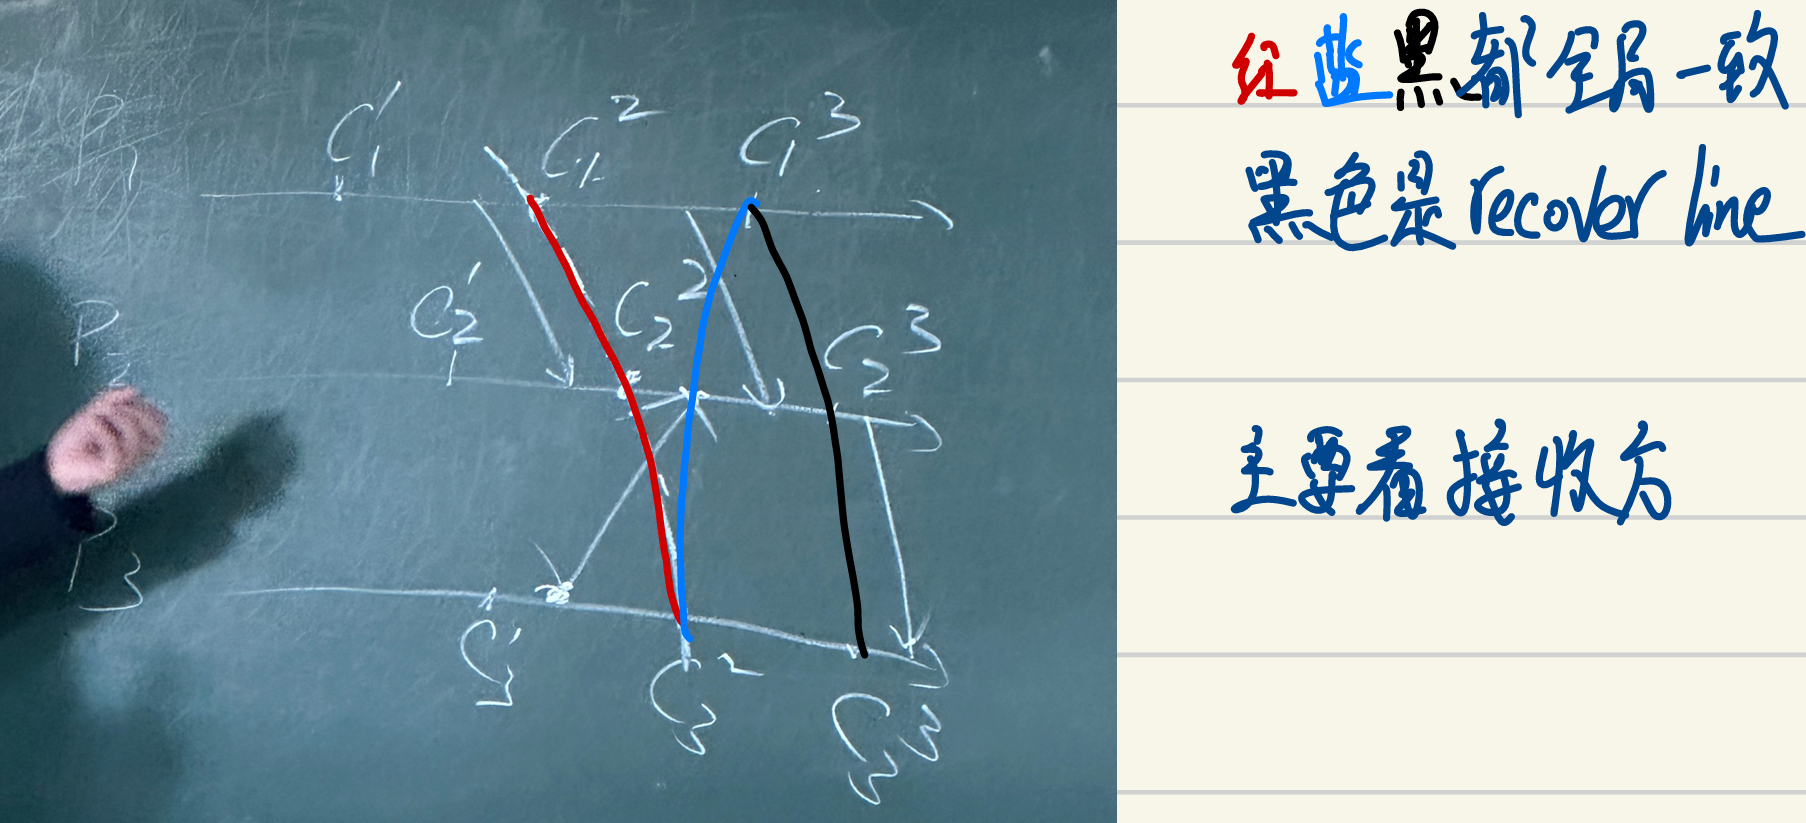 P₁ C₁¹ C₁² C₁³
P₂ C₂¹ C₂² C₂³
P₃ C₃¹ C₃² C₃³
红蓝黑都全局一致
黑色是recover line
主要看接收方